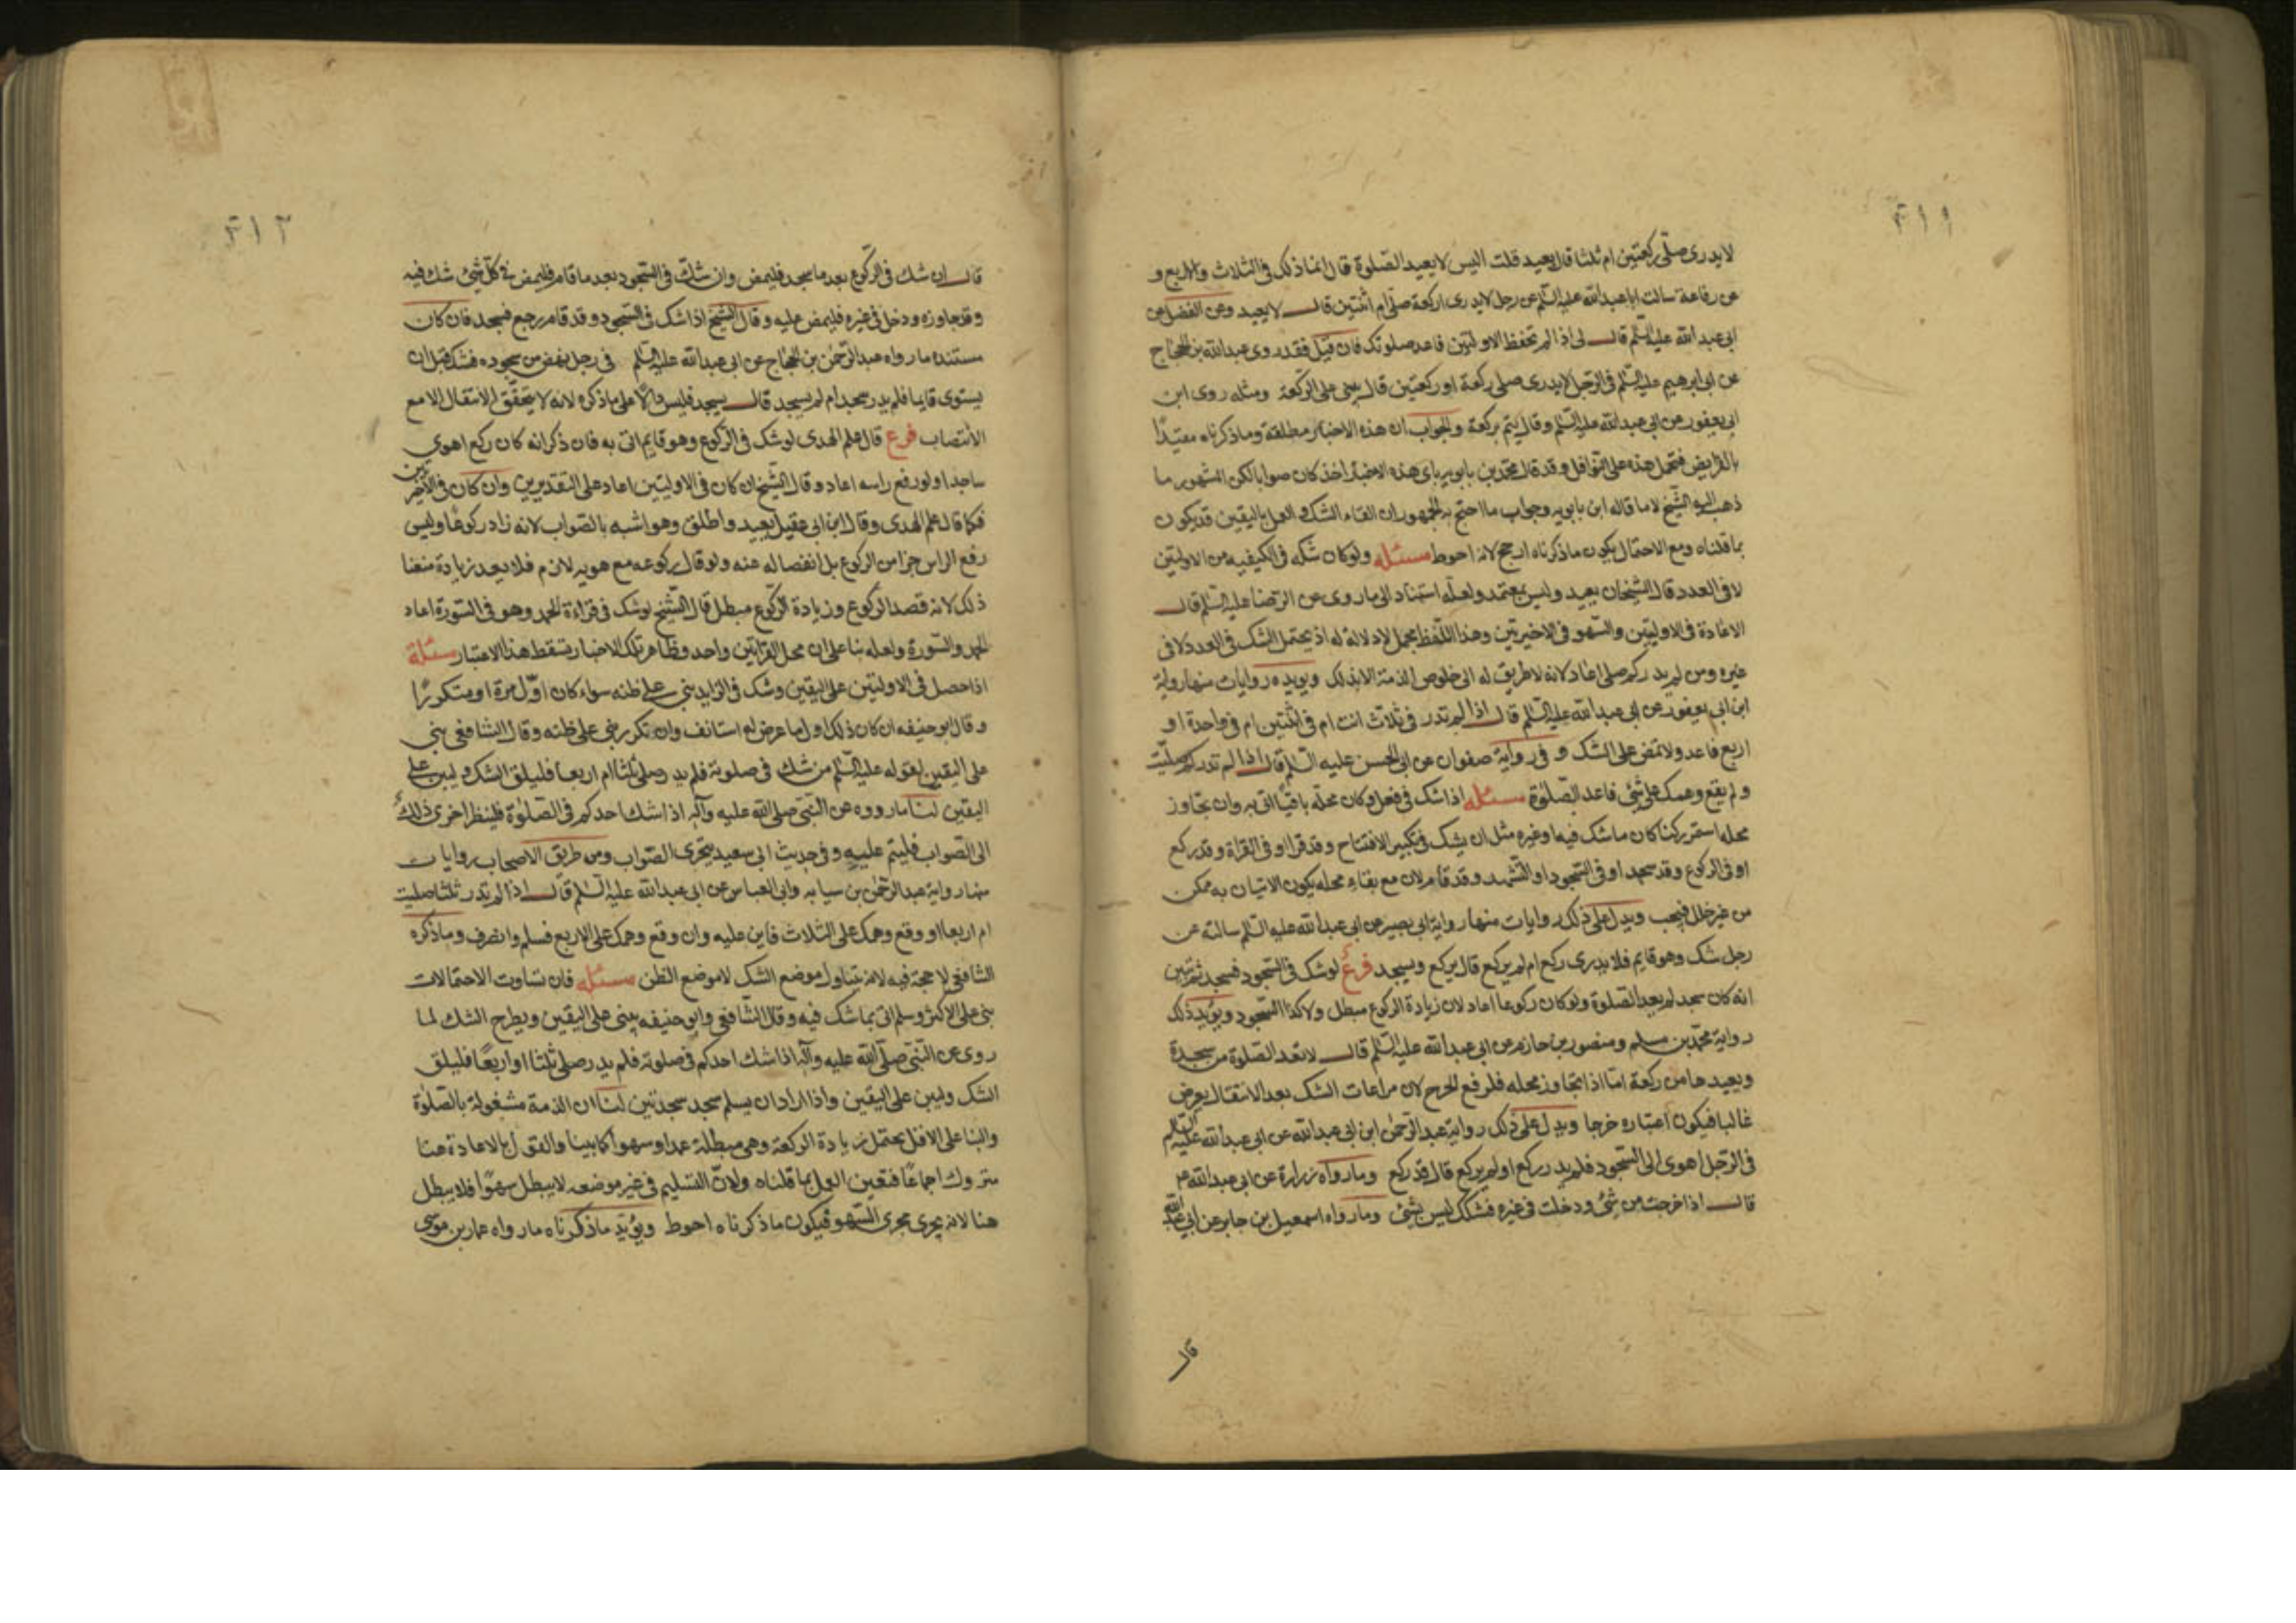 ٣١١
لا يدرى صلى ركعتين ام ثلثا قال يعيد قلت اليس لا يعيد الصلوة قال انما ذلك فى الثلاث والاربع و
عن رفاعة سالت ابا عبد الله عليه السلم عن رجل لا يدرى اركعة صلى ام اثنتين قال لا يعيد وعن الفضل عن
ابى عبد الله عليه السلم قال لى اذا لم تحفظ الاولتين فاعد صلوتك فان قيل فقد روى عبد الله بن الحجاج
عن ابى ابرهيم عليه السلم فى الرجل لا يدرى صلى ركعة او ركعتين قال يبنى على الركعة ومثله روى ابن
ابى يعفور عن ابى عبد الله عليه السلم وقال يتم بركعة والجواب ان هذه الاخبار مطلقة وما ذكرناه مقيدًا
بالفرايض فتحمل هذه على النوافل وقد قال محمد بن بابويه باى هذه الاخبار اخذ كان صوابا لكن المشهور ما
ذهب اليه الشيخ لا ما قاله ابن بابويه وجواب ما احتج به الجمهور ان القاء الشك و العمل باليقين قد يكون
بما قلناه ومع الاحتمال يكون ما ذكرناه ارجح لانه احوط مسئله ولو كان شكه فى الكيفيه من الاولتين
لا فى العدد قال الشيخان يعيد وليس بمعتمد ولعله استناد الى ما روى عن الرضا عليه السلم قال
الاعادة فى الاوليتين والسهو فى الاخيرتين وهذا اللفظ مجمل لا دلالة له اذ يحتمل الشك فى العدد لا فى
غيره ومن لم يدر كم صلى اعاد لانه لا طريق له الى خلوص الذمة الا بذلك ويويده روايات منها رواية
ابن ابى يعفور عن ابى عبد الله عليه السلم قال اذا لم تدر فى ثلاث انت ام فى اثنتين ام فى واحدة او
اربع فاعد ولا تمض على الشك و فى رواية صفوان عن ابى الحسن عليه السلم قال اذا لم تدر كم صليت
ولم يقع وهمك على شئ فاعد الصلوة مسئله اذا شك فى فعل وكان محله باقيًا اتى به وان تجاوز
محله استمر ركنا كان ما شك فيه او غيره مثل ان يشك فى تكبير الافتتاح وقد قرا او فى القراة وقد ركع
او فى الركوع وقد سجد او فى السجود او التشهد وقد قام لان مع بقاء محله يكون الاتيان به ممكن
من غير خلل فيجب ويدل على ذلك روايات منها رواية ابى بصير عن ابى عبد الله عليه السلم سالته عن
رجل شك وهو قايم فلا يدرى ركع ام لم يركع قال يركع ويسجد فرع لو شك فى السجود فسجد ثم تبين
انه كان سجد لم يعد الصلوة ولو كان ركوعا اعاد لان زيادة الركوع مبطل ولا كذا السجود ويؤيد ذلك
رواية محمد بن مسلم ومنصور بن حازم عن ابى عبد الله عليه السلم قال لا تعد الصلوة من سجدة
ويعيدها من ركعة امّا اذا تجاوز محله فلرفع الحرج لان مراعات الشك بعد الانتقال يعرض
غالبا فيكون اعتباره خرجا ويدل على ذلك رواية عبد الرحمن ابن ابى عبد الله عن ابى عبد الله عليه السلم
فى الرجل اهوى الى السجود فلم يدر ركع او لم يركع قال قد ركع وما رواه زرارة عن ابى عبد الله عم
قال اذا خرجت من شئ ودخلت فى غيره فشكك ليس بشئ وما رواه اسمعيل بن جابر عن ابى عبد الله
قال
٣١٢
قال ان شك فى الركوع بعد ما سجد فليمض وان شك فى السجود بعد ما قام فليمض فى كل شئ شك فيه
وقد جاوزه ودخل فى غيره فليمض عليه وقال الشيخ اذا شك فى السجود وقد قام رجع فسجد فان كان
مستنده ما رواه عبد الرحمن بن الحجاج عن ابى عبد الله عليه السلم فى رجل نهض من سجوده فشك قبل ان
يستوى قايما فلم يدر سجد ام لم يسجد قال يسجد فليس دالًا على ما ذكره لانه لا يتحقق الانتقال الا مع
الانتصاب فرع قال علم الهدى لو شك فى الركوع وهو قايم اتى به فان ذكر انه كان ركع اهوى
ساجدا ولو رفع راسه اعاد وقال الشيخ ان كان فى الاوليتين اعاد على التقديرين وان كان فى الاخيرتين
فكما قال علم الهدى وقال ابن ابى عقيل يعيد واطلق وهو اشبه بالصواب لانه زاد ركوعًا وليس
رفع الراس جزا من الركوع بل انفصاله عنه ولو قال ركوعه مع هويه لازم فلا يعد زيادة منعنا
ذلك لانه قصد الركوع وزيادة الركوع مبطل قال الشيخ لو شك فى قراءة الحمد وهو فى السورة اعاد
الحمد والسورة ولعله بنا على ان محل القراتين واحد وظاهر تلك الاخبار تسقط هذا الاعتبار مسئلة
اذا حصل فى الاوليتين على اليقين وشك فى الزايد بنى على ظنه سواء كان اوّل مرة او متكررًا
وقال ابو حنيفه ان كان ذلك اول ما عرض له استانف وان تكرر بنى على ظنه وقال الشافعى بنى
على اليقين لقوله عليه السلم من شك فى صلوته فلم يدر صلى ثلثا ام اربعا فليلق الشك وليبن على
اليقين لنا ما رووه عن النبى صلى الله عليه وآله اذا شك احدكم فى الصلوة فلينظر احرى ذلك
الى الصواب فليتم عليه وفى حديث ابى سعيد يتحرى الصواب ومن طريق الاصحاب روايات
منها رواية عبد الرحمن بن سيابه وابى العباس عن ابى عبد الله عليه السلم قال اذا لم تدر ثلثا صليت
ام اربعا او وقع وهمك على الثلاث فابن عليه وان وقع وهمك على الاربع فسلم وانصرف وما ذكره
الشافعى لا حجة فيه لانه يتناول موضع الشك لا موضع الظن مسئله فان تساوت الاحتمالات
بنى على الاكثر وسلم اتى بما شك فيه وقال الشافعى وابو حنيفه يبنى على اليقين ويطرح الشك لما
روى عن النبى صلى الله عليه وآله اذا شك احدكم فى صلوته فلم يدر صلى ثلثا او اربعًا فليلق
الشك وليبن على اليقين واذا اراد ان يسلم سجد سجدتين لنا ان الذمة مشغولة بالصلوة
والبنا على الاقل يحتمل زيادة الركعة وهى مبطلة عمدا وسهوا كما بينا والقول بالاعادة هنا
متروك اجماعًا فتعين العمل بما قلناه ولان التسليم فى غير موضعه لا يبطل سهوًا فلا يبطل
هنا لانه يجرى مجرى السهو فيكون ما ذكرناه احوط ويؤيد ما ذكرناه ما رواه عمار بن موسى